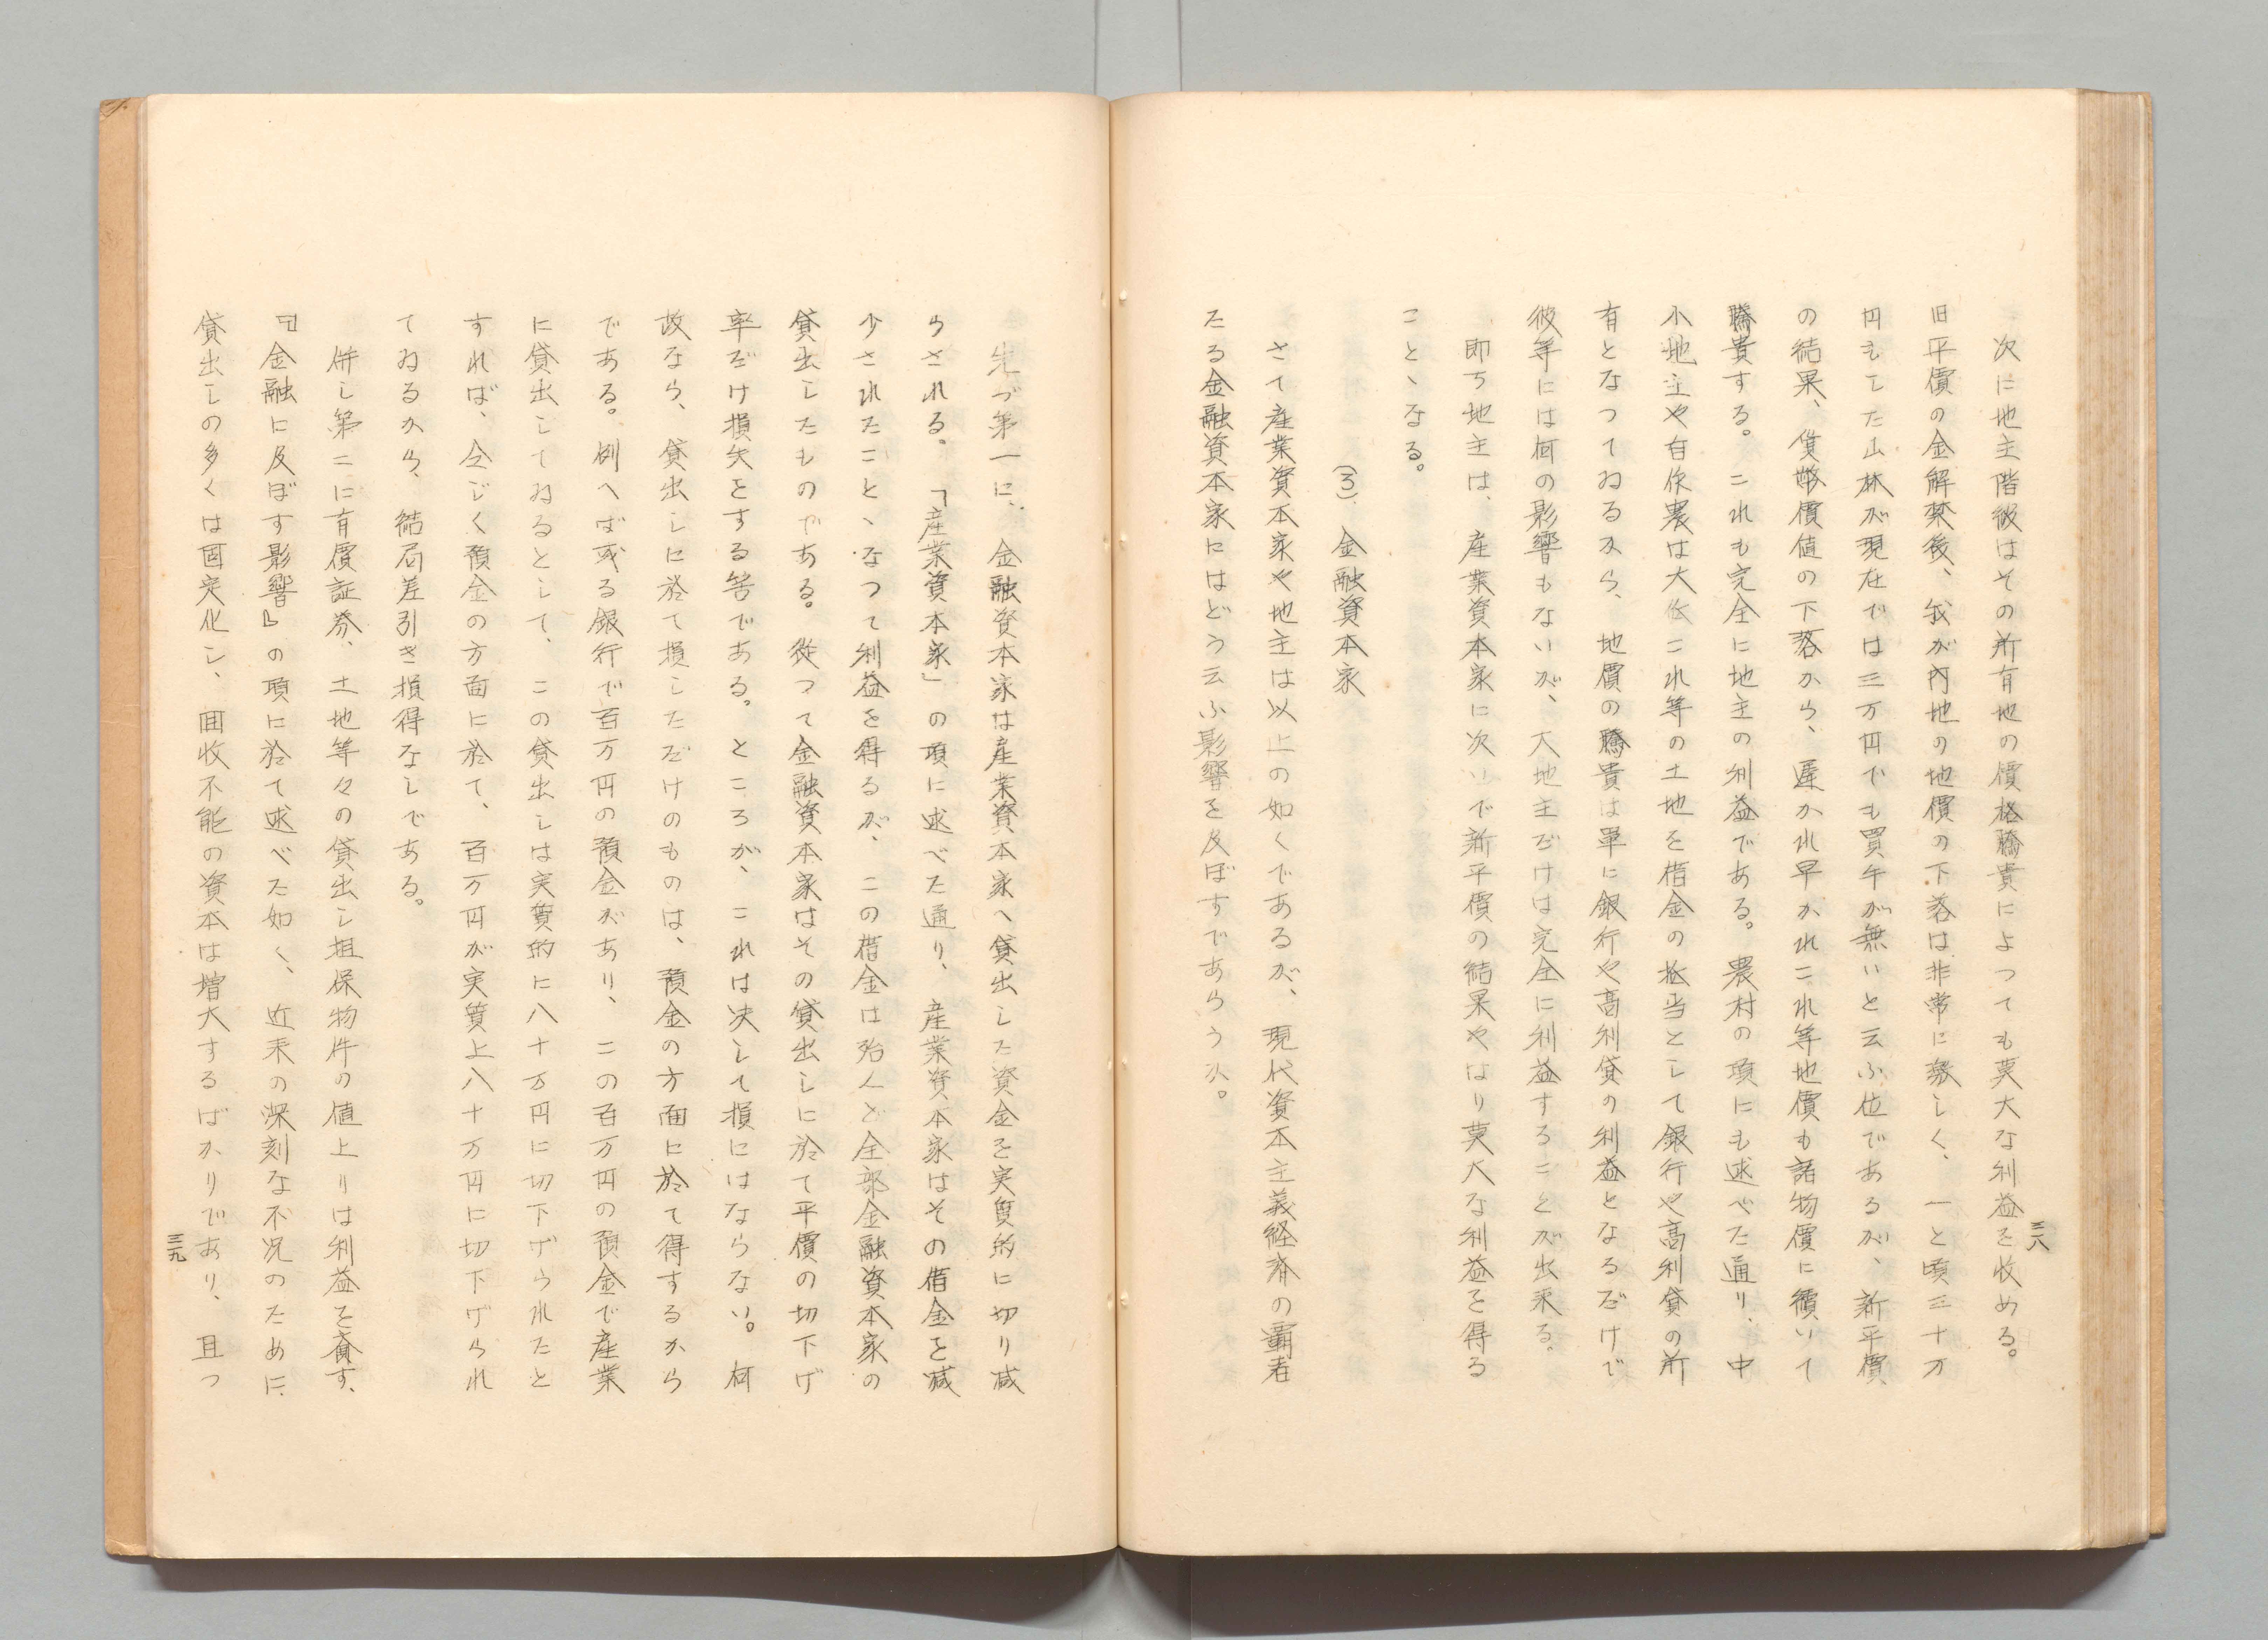 三八
次に地主階級はその所有地の價格騰貴によつても莫大な利益を收める。
旧平價の金解禁後、我が内地の地價の下落は非常に激しく、一と頃三十万
円もした山林が現在では三万円でも買手が無いと云ふ位であるが、新平價
の結果、貨幣價値の下落から、遅かれ早かれこれ等地價も諸物價に續いて
騰貴する。これも完全に地主の利益である。農村の項にも述べた通り、中
小地主や自作農は大低これ等の土地を借金の抵当として銀行や高利貸の所
有となつてゐるから、地價の騰貴は單に銀行や高利貸の利益となるだけで
彼等には何の影響もないが、大地主だけは完全に利益することが出来る。
即ち地主は、産業資本家に次いで新平價の結果やはり莫大な利益を得る
ことゝなる。
(3)、金融資本家
さて産業資本家や地主は以上の如くであるが、現代資本主義経済の覇者
たる金融資本家にはどう云ふ影響を及ぼすであらうか。
先づ第一に、金融資本家は産業資本家へ貸出した資金を実質的に切り減
らされる。「産業資本家」の項に述べた通り、産業資本家はその借金を減
少されたことゝなつて利益を得るが、この借金は殆んど全部金融資本家の
貸出したものである。從つて金融資本家はその貸出しに於て平價の切下げ
率だけ損失をする筈である。ところが、これは决して損にはならない。何
故なら、貸出しに於て損しただけのものは、預金の方面に於て得するから
である。例へば或る銀行で百万円の預金があり、この百万円の預金で産業
に貸出してゐるとして、この貸出しは実質的に八十万円に切下げられたと
すれば、仝じく預金の方面に於て、百万円が実質上八十万円に切下げられ
てゐるから、結局差引き損得なしである。
併し第二に有價証券、土地等々の貸出し担保物件の値上りは利益を齎す、
『金融に及ぼす影響』の項に於て述べた如く、近来の深刻な不况のために
貸出しの多くは固定化し、回收不能の資本は増大するばかりであり、且つ
三九